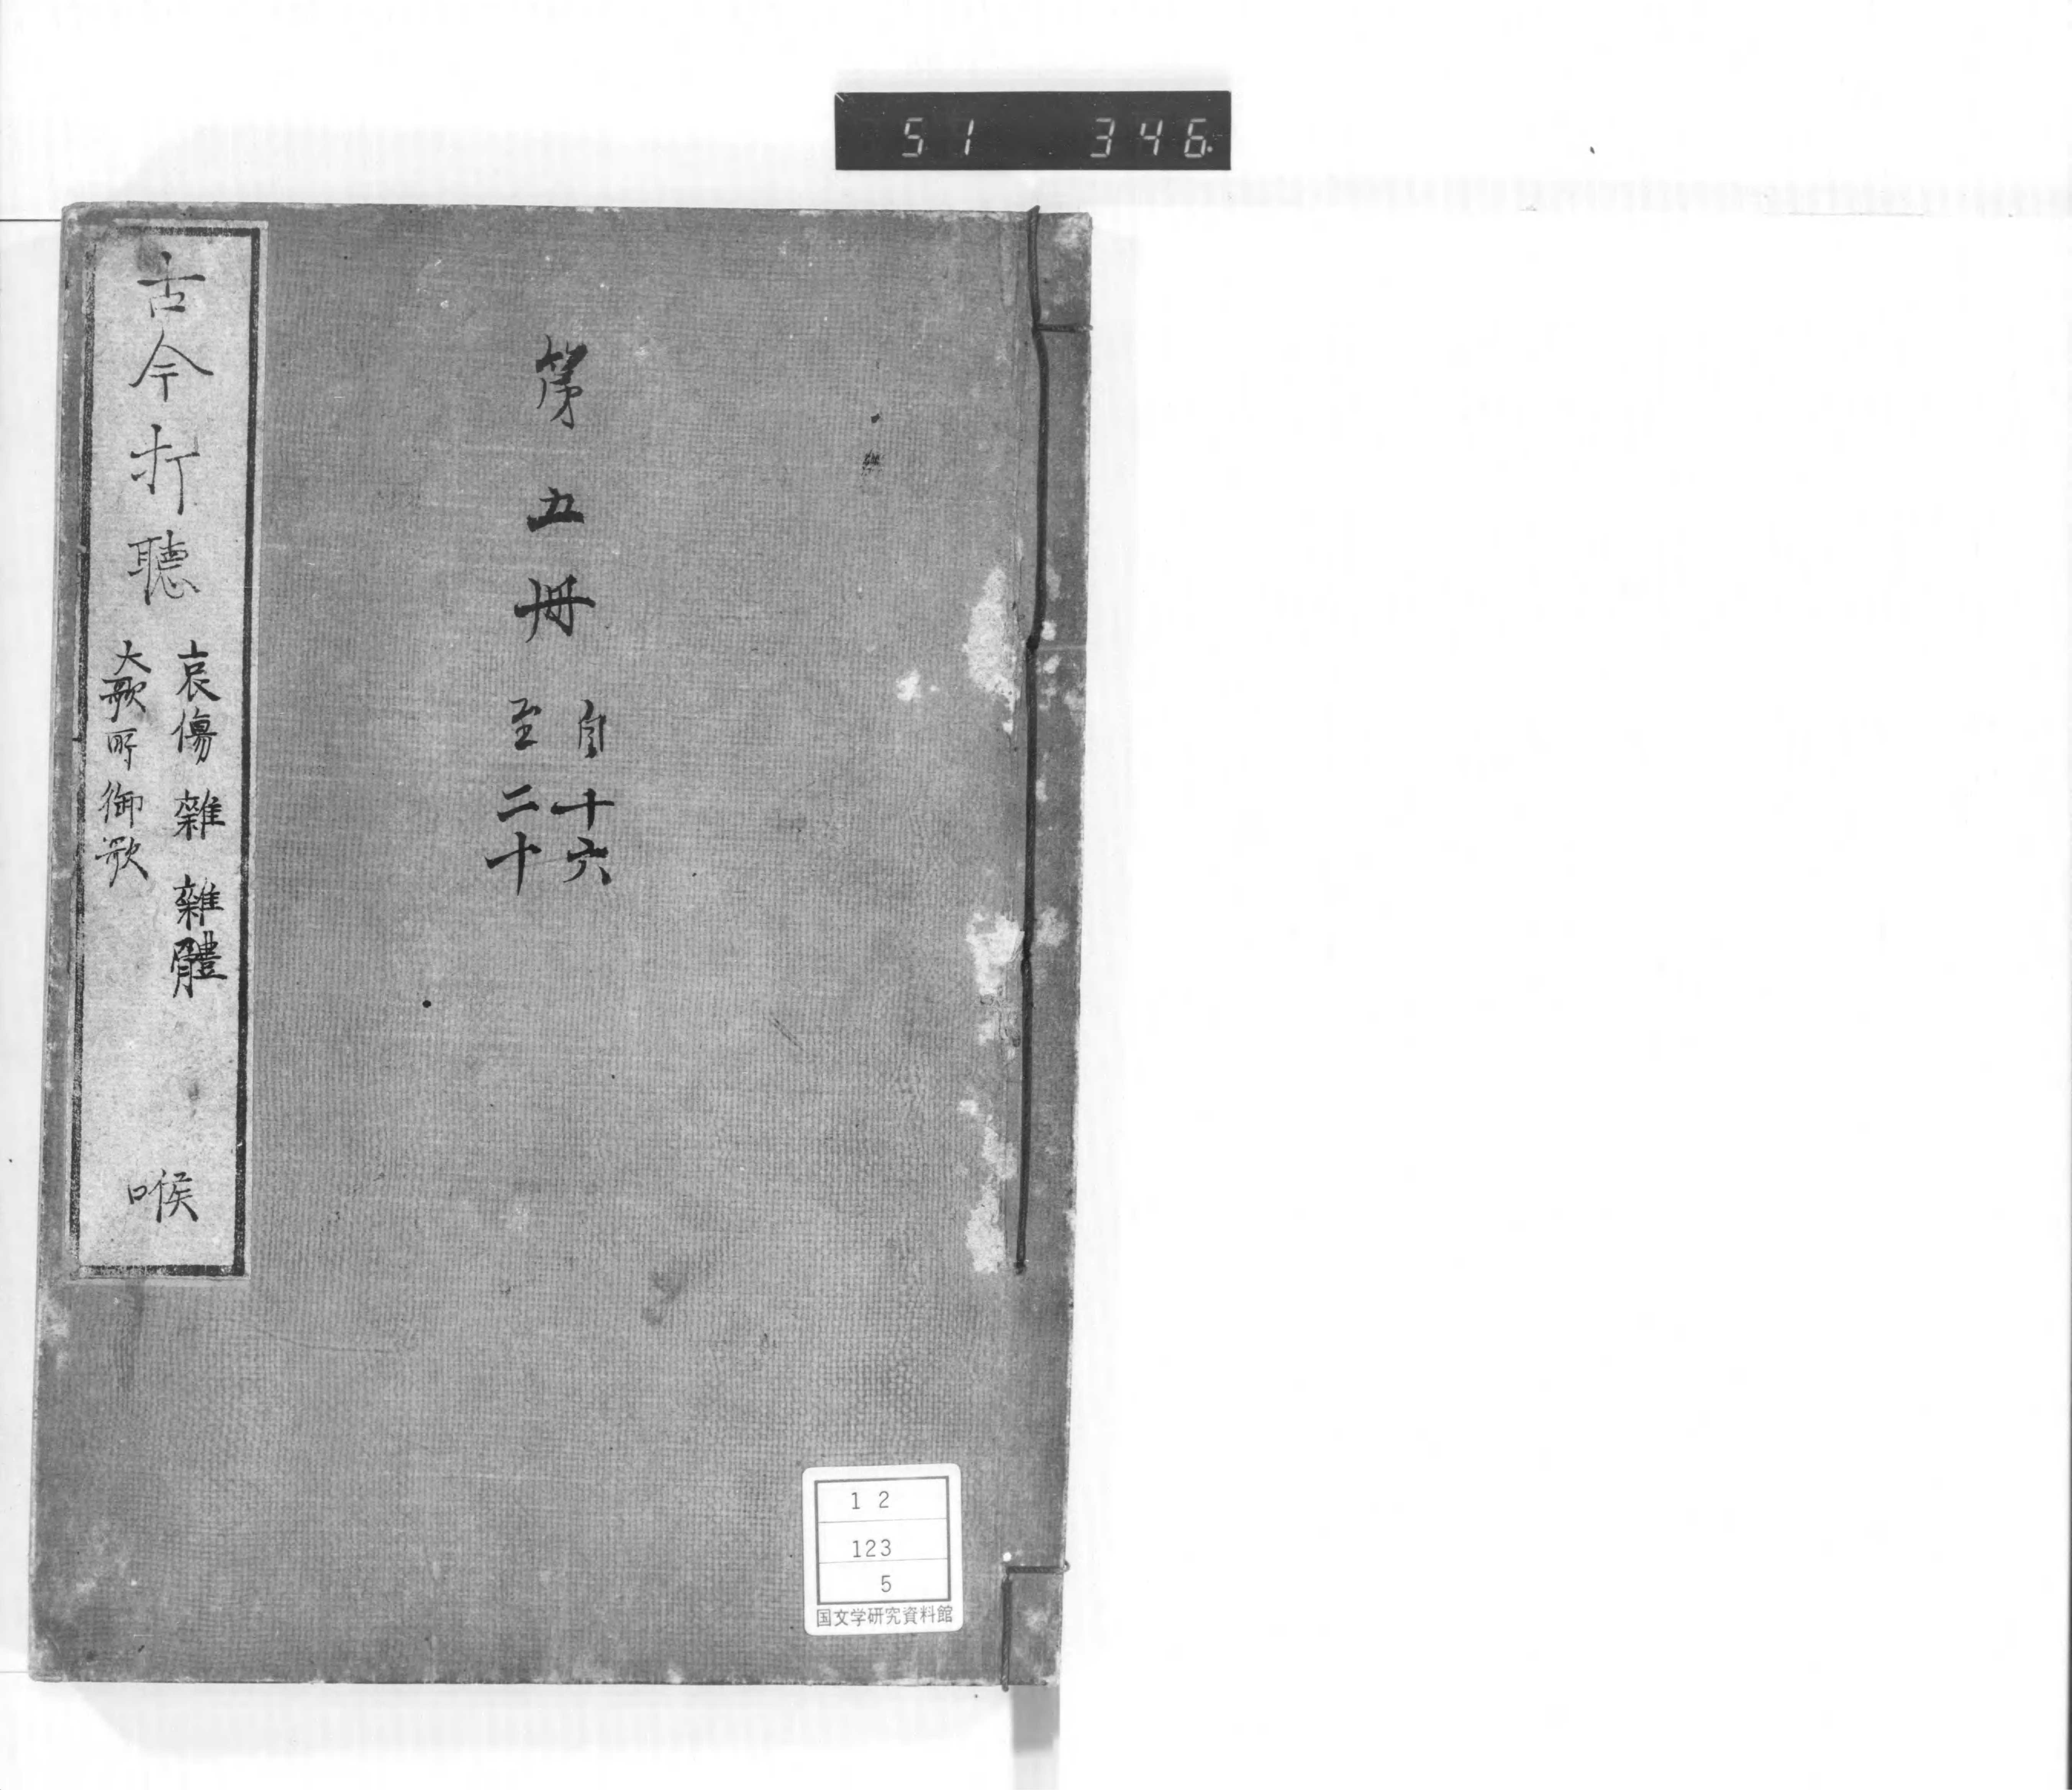 51 346.
第五冊
自十六
至二十
古今打聽
哀傷 雜 雜體
大歌所御歌
喉
12
123
5
国文学研究資料館